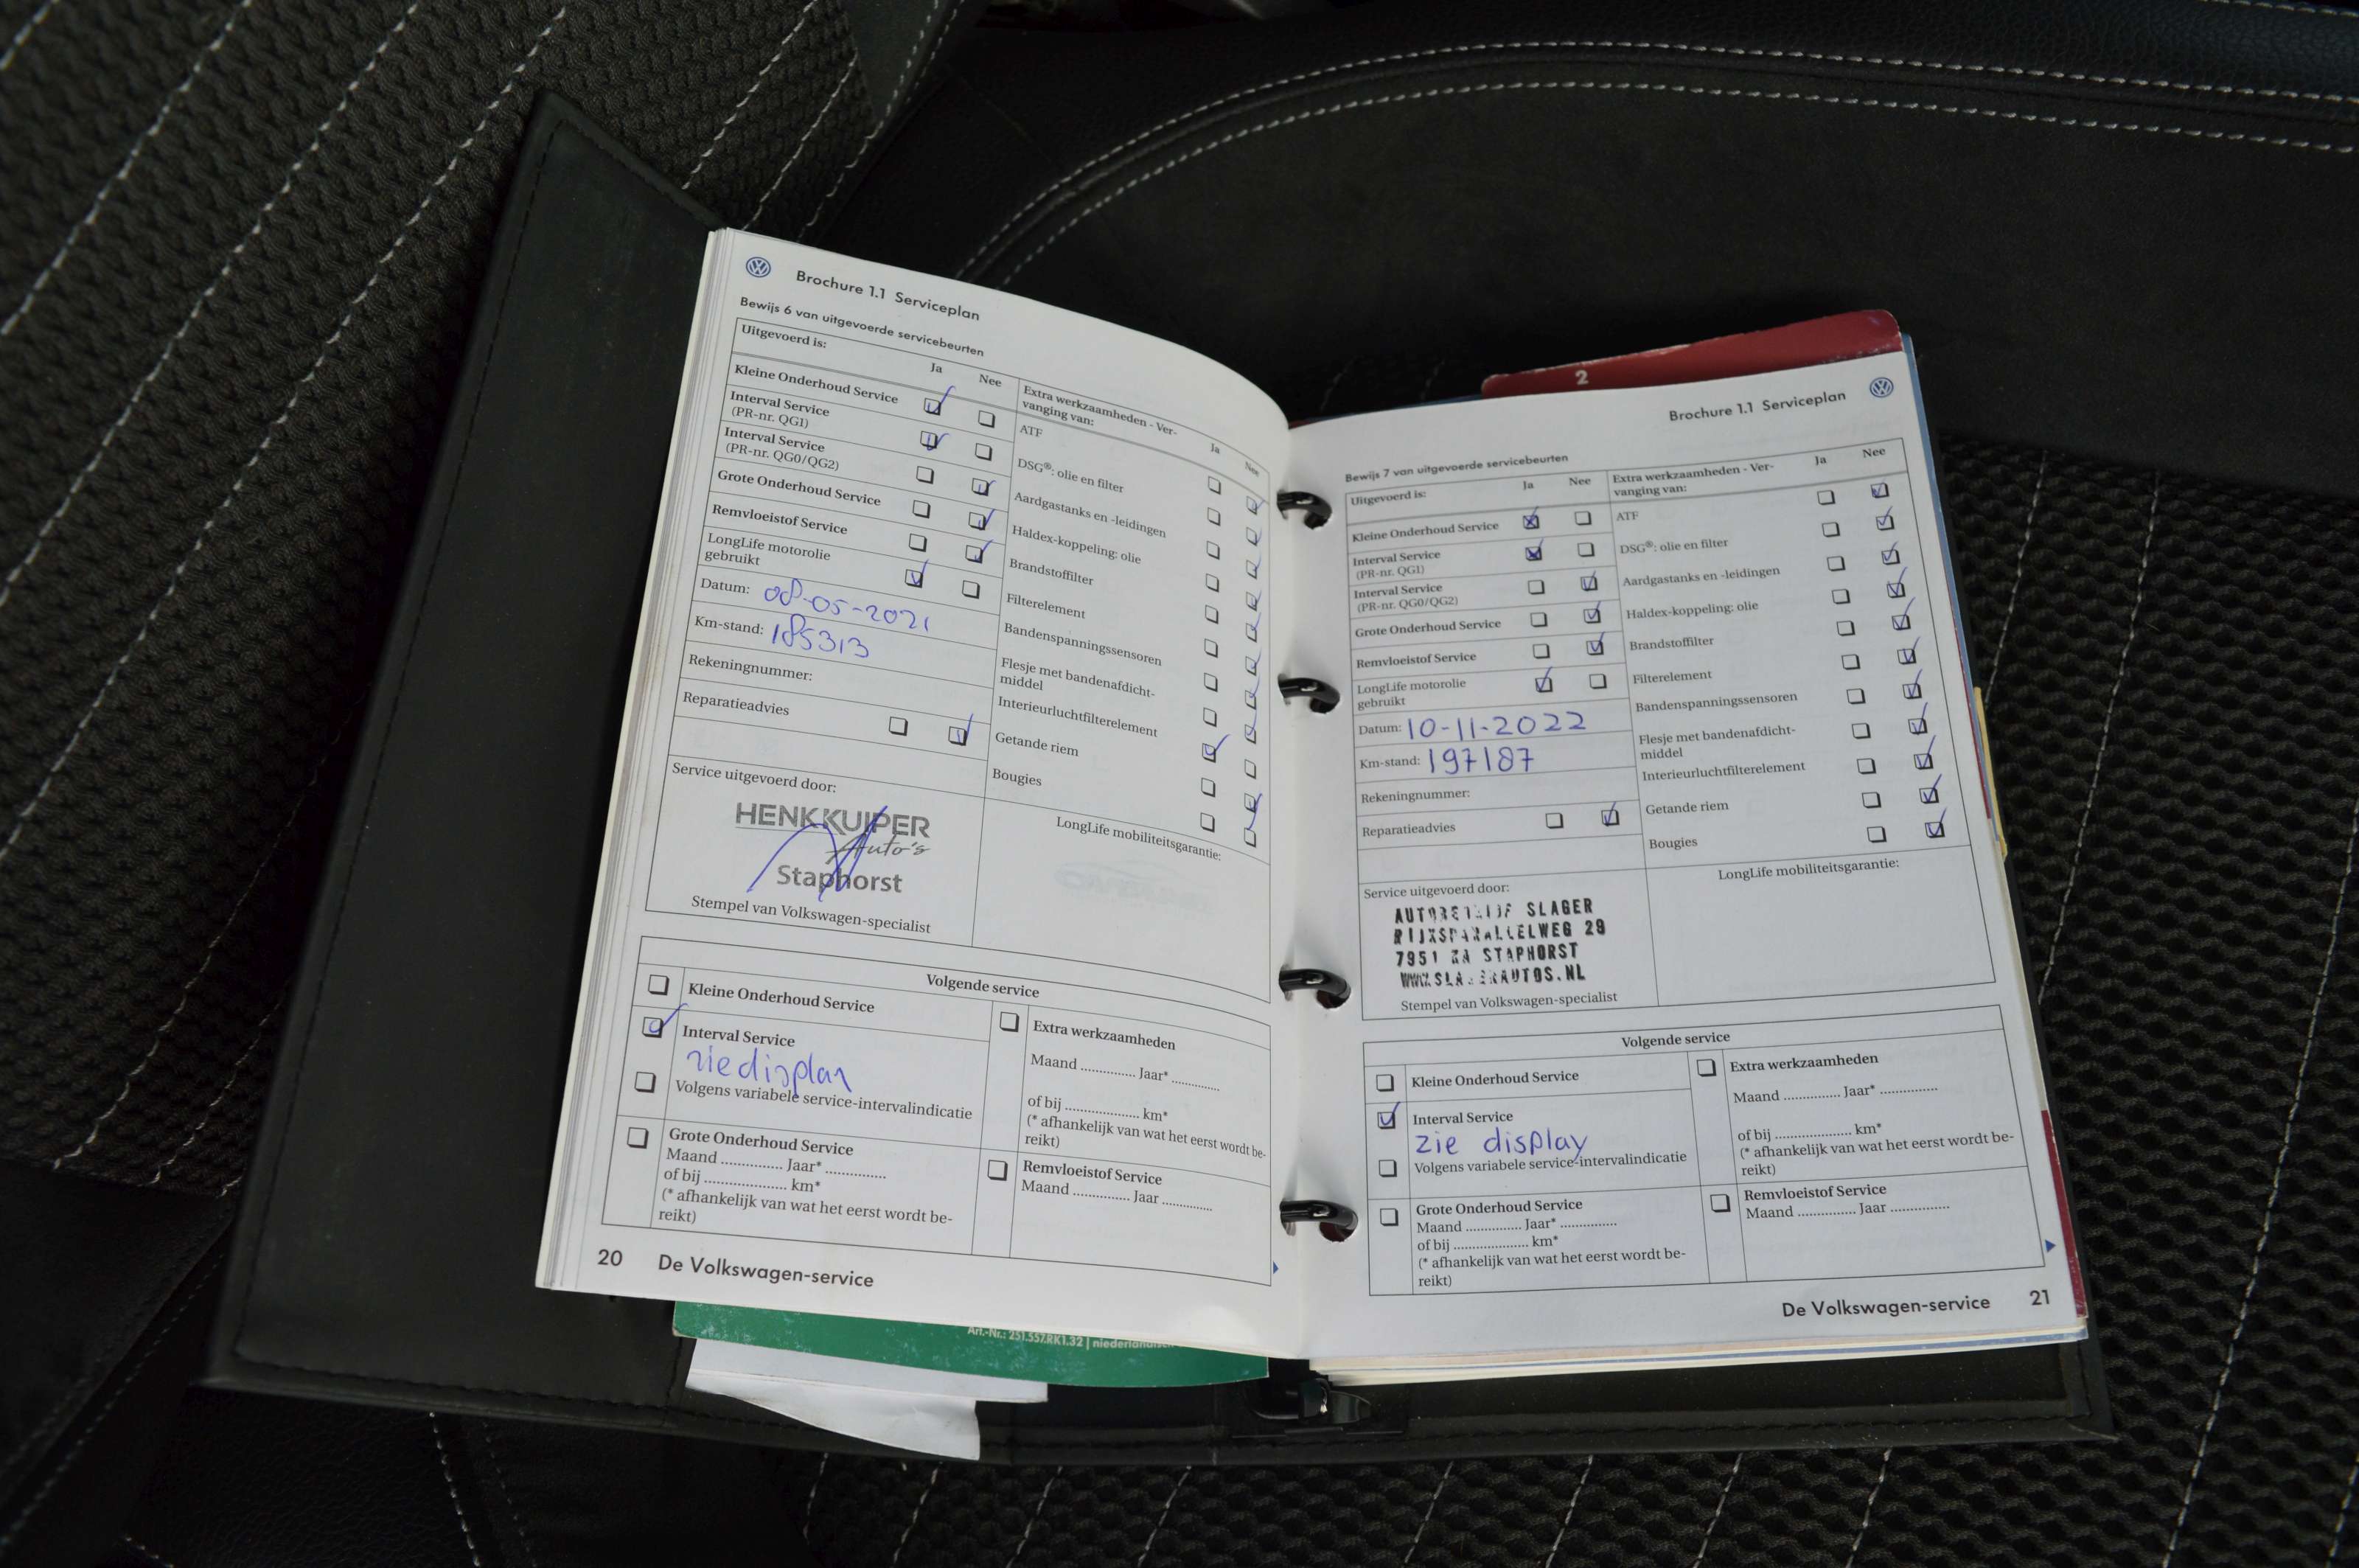 Brochure 1.1 Serviceplan
Bewijs 6 van uitgevoerde servicebeurten
Uitgevoerd is:
Ja Nee
Extra werkzaamheden - Ver-
vanging van:
Ja Nee
Kleine Onderhoud Service
Interval Service
(PR-nr. QG1)
Interval Service
(PR-nr. QG0/QG2)
Grote Onderhoud Service
Remvloeistof Service
LongLife motorolie
gebruikt
Datum: 08-05-2021
Km-stand: 185313
Rekeningnummer:
Reparatieadvies
ATF
DSG®: olie en filter
Aardgastanks en -leidingen
Haldex-koppeling: olie
Brandstoffilter
Filterelement
Bandenspanningssensoren
Flesje met bandenafdicht-
middel
Interieurluchtfilterelement
Getande riem
Bougies
Service uitgevoerd door:
HENKKUIPER
Auto's
Staphorst
Stempel van Volkswagen-specialist
LongLife mobiliteitsgarantie:
Volgende service
Kleine Onderhoud Service
Interval Service
zie display
Volgens variabele service-intervalindicatie
Grote Onderhoud Service
Maand .............. Jaar* ..............
of bij .................... km*
(* afhankelijk van wat het eerst wordt be-
reikt)
Extra werkzaamheden
Maand .............. Jaar* ............
of bij .................... km*
(* afhankelijk van wat het eerst wordt be-
reikt)
Remvloeistof Service
Maand .............. Jaar .............
20 De Volkswagen-service
Art.-Nr.: 251.557.RK1.32
2
Brochure 1.1 Serviceplan
Bewijs 7 van uitgevoerde servicebeurten
Uitgevoerd is:
Ja Nee
Extra werkzaamheden - Ver-
vanging van:
Ja Nee
Kleine Onderhoud Service
Interval Service
(PR-nr. QG1)
Interval Service
(PR-nr. QG0/QG2)
Grote Onderhoud Service
Remvloeistof Service
LongLife motorolie
gebruikt
Datum: 10-11-2022
Km-stand: 197187
Rekeningnummer:
Reparatieadvies
ATF
DSG®: olie en filter
Aardgastanks en -leidingen
Haldex-koppeling: olie
Brandstoffilter
Filterelement
Bandenspanningssensoren
Flesje met bandenafdicht-
middel
Interieurluchtfilterelement
Getande riem
Bougies
Service uitgevoerd door:
AUTOBEDRIJF SLAGER
RIJKSPARALLELWEG 29
7951 ZA STAPHORST
WWW.SLAGERAUTOS.NL
Stempel van Volkswagen-specialist
LongLife mobiliteitsgarantie:
Volgende service
Kleine Onderhoud Service
Interval Service
zie display
Volgens variabele service-intervalindicatie
Grote Onderhoud Service
Maand .............. Jaar* ..............
of bij .................... km*
(* afhankelijk van wat het eerst wordt be-
reikt)
Extra werkzaamheden
Maand .............. Jaar* ..............
of bij .................... km*
(* afhankelijk van wat het eerst wordt be-
reikt)
Remvloeistof Service
Maand .............. Jaar ..............
De Volkswagen-service 21